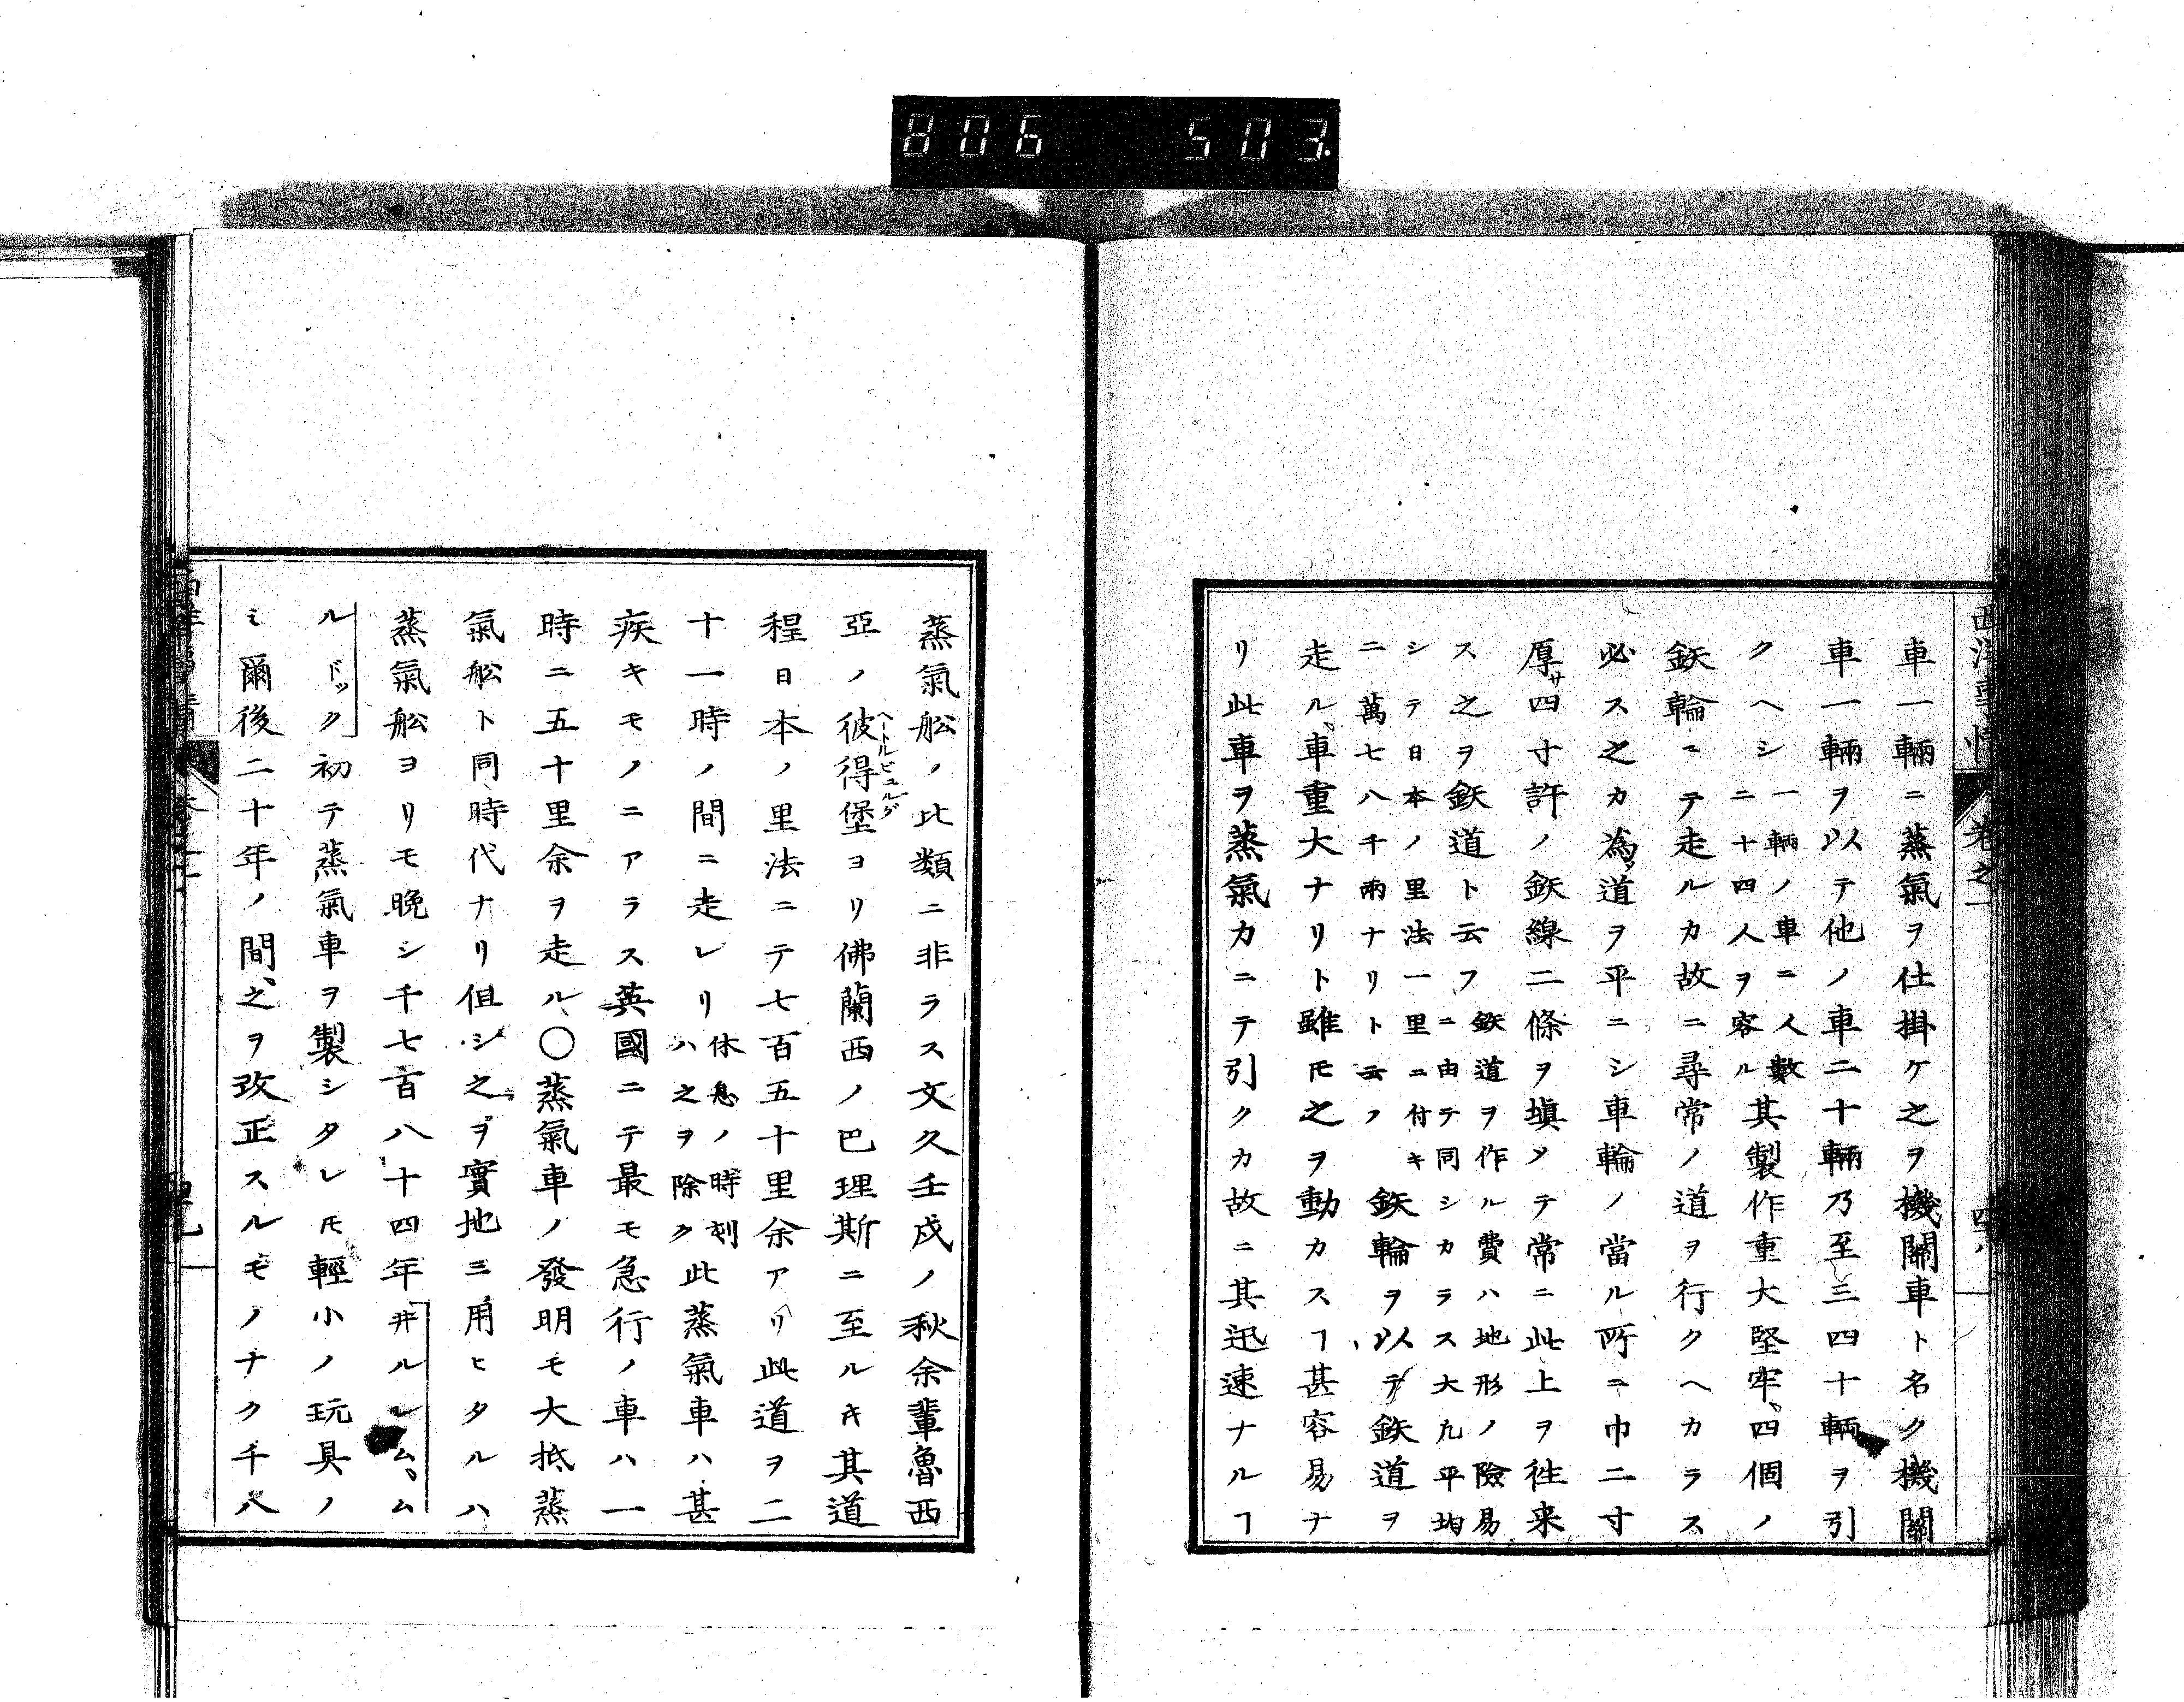 806 503
西洋事情 卷之一
車一輛ニ蒸氣ヲ仕掛ケ之ヲ機關車ト名ク機關
車一輛ヲ以テ他ノ車二十輛乃至三四十輛ヲ引
クヘシ一輛ノ車ニ人數二十四人ヲ容ル其製作重大堅牢、四個ノ
鉃輪ニテ走ルカ故ニ尋常ノ道ヲ行クヘカラス
必ス之カ為メ道ヲ平ニシ車輪ノ當ル所ニ巾二寸
厚サ四寸許ノ鉃線二條ヲ塡メテ常ニ此上ヲ徃来
ス之ヲ鉃道ト云フ鉃道ヲ作ル費ハ地形ノ險易ニ由テ同シカラス大凢平均
シテ日本ノ里法一里ニ付キ二萬七八千兩ナリト云フ鉃輪ヲ以テ鉃道ヲ
走ル、車重大ナリト雖𪜈之ヲ動カスヿ甚容易ナ
リ此車ヲ蒸氣力ニテ引クカ故ニ其迅速ナルヿ
蒸氣舩ノ比類ニ非ラス文久壬戌ノ秋余輩魯西
亞ノ彼得堡ヘートルビュルグヨリ佛蘭西ノ巴理斯ニ至ルキ其道
程日本ノ里法ニテ七百五十里余アリ此道ヲ二
十一時ノ間ニ走レリ休息ノ時刻ハ之ヲ除ク此蒸氣車ハ甚
疾キモノニアラス英國ニテ最モ急行ノ車ハ一
時ニ五十里余ヲ走ル〇蒸氣車ノ發明モ大抵蒸
氣舩ト同時代ナリ但シ之ヲ實地ニ用ヒタルハ
蒸氣舩ヨリモ晩シ千七百八十四年井ルレム、ム
ルドック初テ蒸氣車ヲ製シタレ𪜈輕小ノ玩具ノ
ミ爾後二十年ノ間、之ヲ改正スルモノナク千八